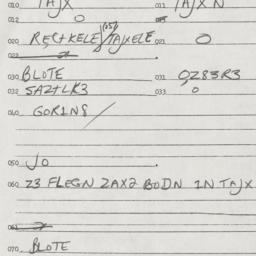 010 TAJX 011 TAJX N
012 0 013
020 RECTKELE (05) TAJXELE 021 0
022
030 BLOTE 031 0Z83R3
032 SAZTLK3 033 0
040 GORINS /
050 JO
060 Z3 FLEGN ZAXZ BODN IN TAJX
06
070 BLOTE